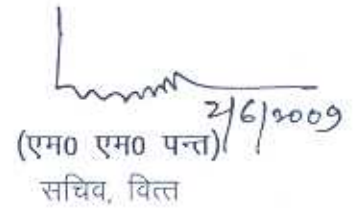 2/6/2009
(एम0 एम0 पन्त)
सचिव, वित्त